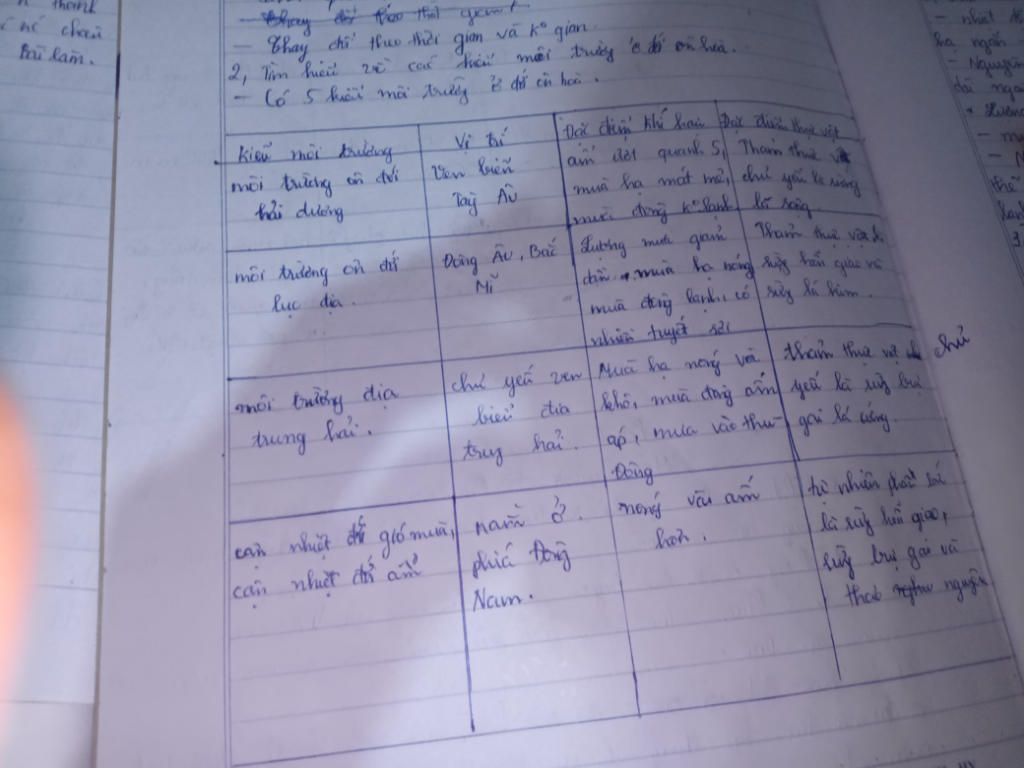 thành
chấu
bài làm.
- Thay đổi theo thời gian và k° gian
2, Tìm hiểu về các kiểu môi trường ở đới ôn hoà.
- Có 5 kiểu môi trường ở đới ôn hoà.
Kiểu môi trường
Vị trí
Đặc điểm khí hậu
Đặc điểm thực vật
môi trường ôn đới
hải dương
Ven biển
Tây Âu
ẩm ướt quanh 5,
mùa hạ mát mẻ,
mùa đông k° lạnh
Thảm thực vật
chủ yếu là rừng
lá rộng
môi trường ôn đới
lục địa.
Đông Âu, Bắc
Mĩ
Lượng mưa giảm
dần, mùa hạ nóng
mùa đông lạnh, có
nhiều tuyết rơi
Thảm thực vật là
rừng hỗn giao và
rừng lá kim.
môi trường địa
trung hải.
chủ yếu ven
biển địa
trug hải.
Mùa hạ nóng và
khô, mùa đông ấm
áp, mưa vào thu-
Đông
thảm thực vật chủ
yếu là rừng bụi
gai lá cứng.
cận nhiệt đới gió mùa,
cận nhiệt đới ẩm
nằm ở
phía Đông
Nam.
nóng và ẩm
hơn.
tự nhiên
là rừng hỗn giao,
rừng bụi gai và
thảo nguyên
- nhiệt độ
hạ ngắn
- Nguyên
dài ngà